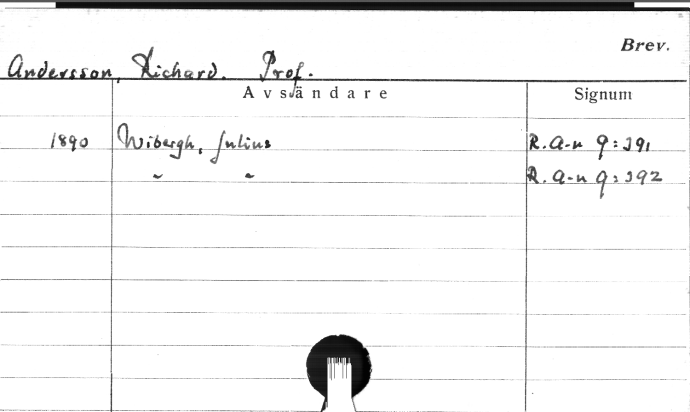 Brev.
Andersson, Richard. Prof.
Avsändare Signum
1890 Wibergh, Julius R.a-n 9:391
" " R.a-n 9:392